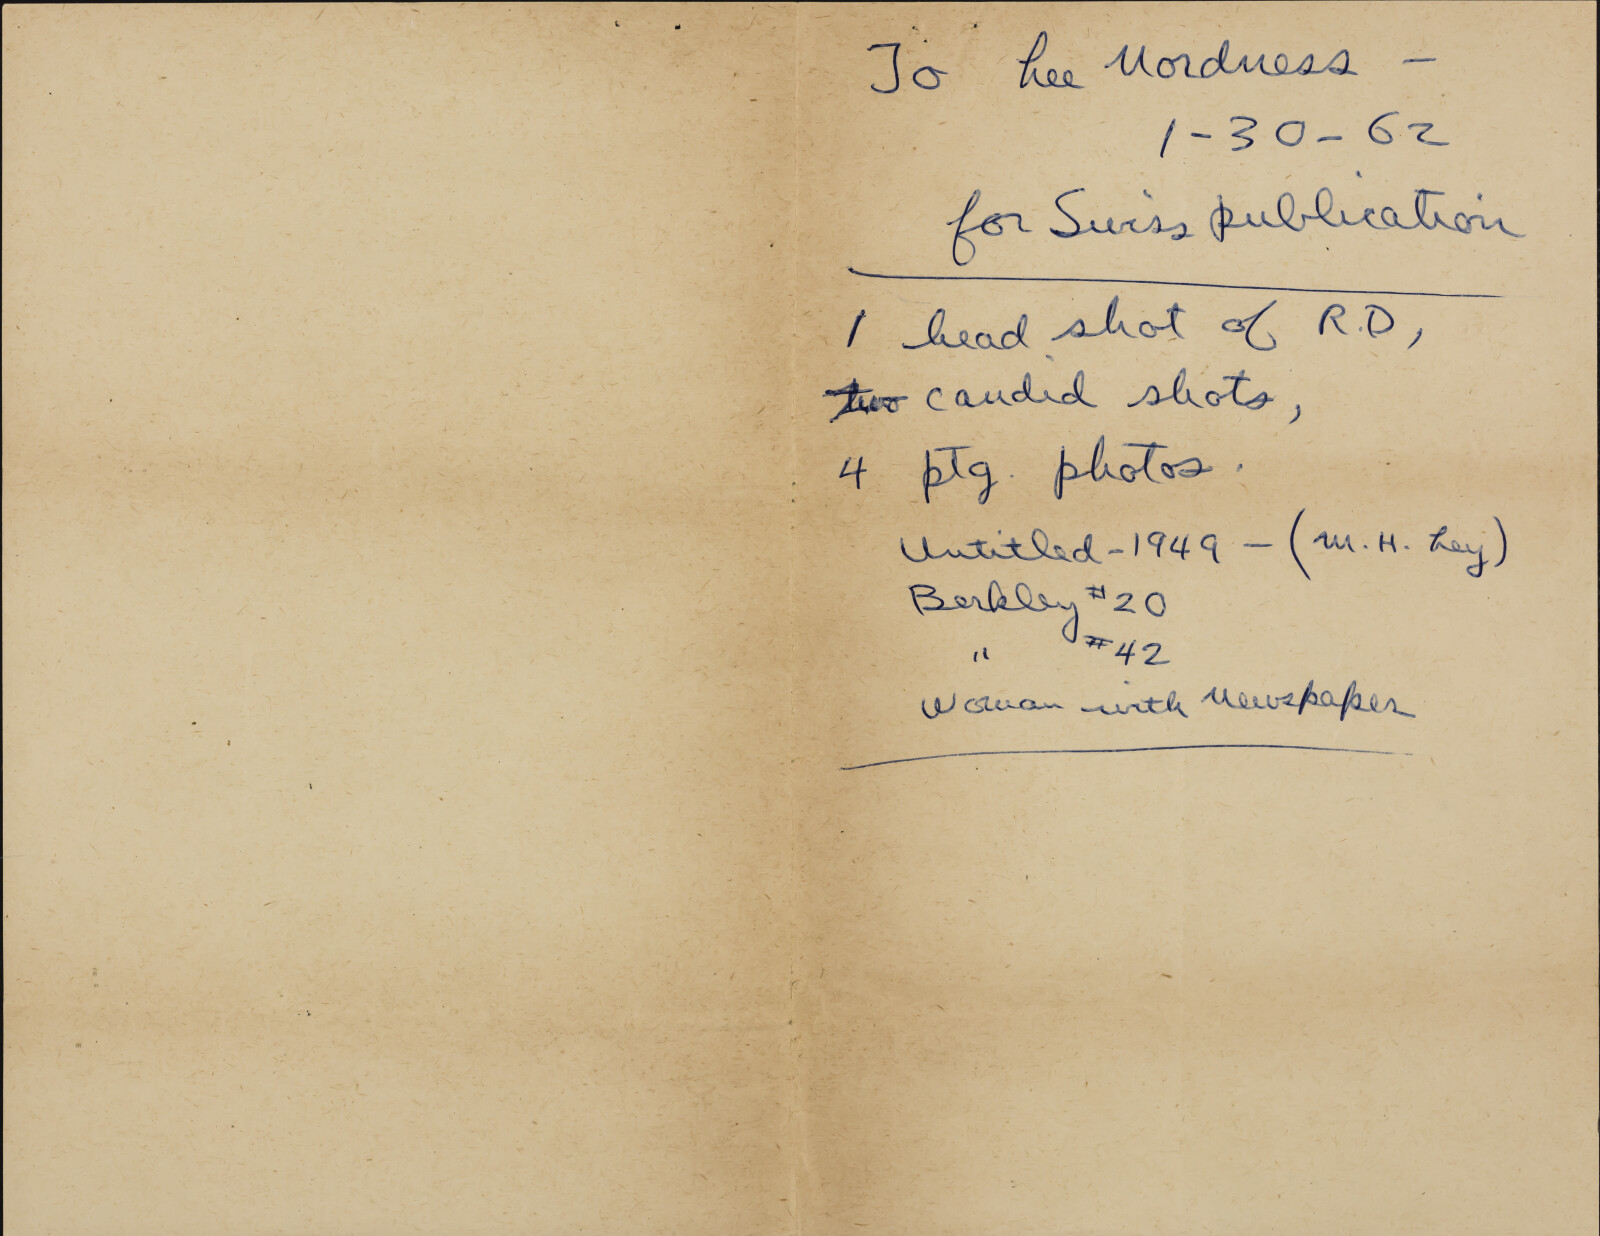 To Lee Nordness –
1-30-62
for Swiss publication
1 head shot of R.D,
two candid shots,
4 ptg. photos.
Untitled - 1949 – (M. H. Ley)
Berkley #20
" #42
Woman with Newspaper